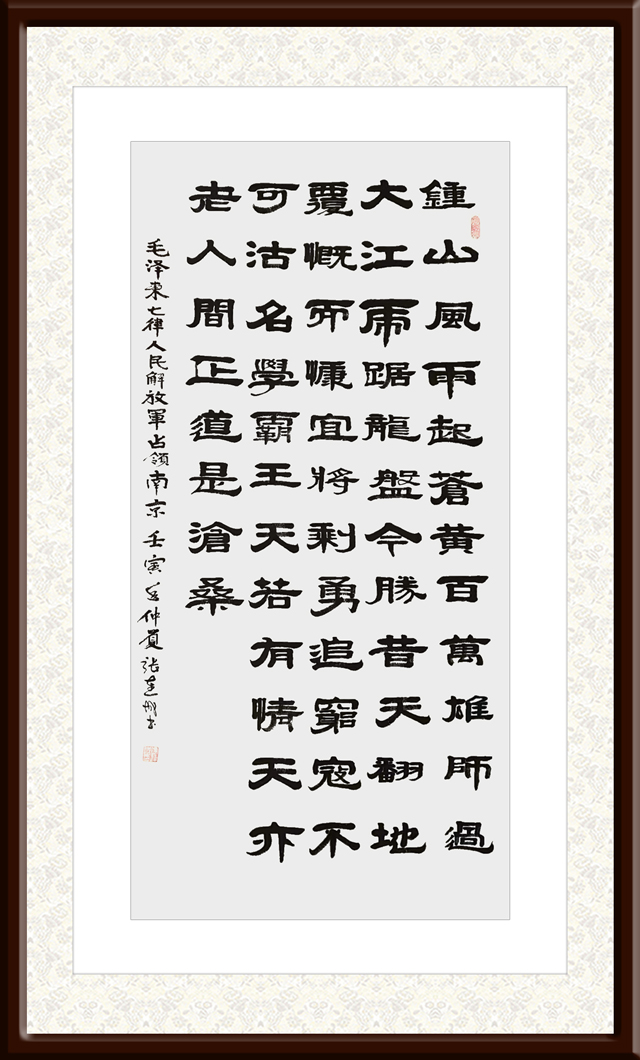 鍾山風雨起蒼黄百萬雄師過
大江虎踞龍盤今勝昔天翻地
覆慨而慷宜將剩勇追窮寇不
可沽名學霸王天若有情天亦
老人間正道是滄桑
毛泽東七律人民解放軍占領南京 壬寅年仲夏 张建书